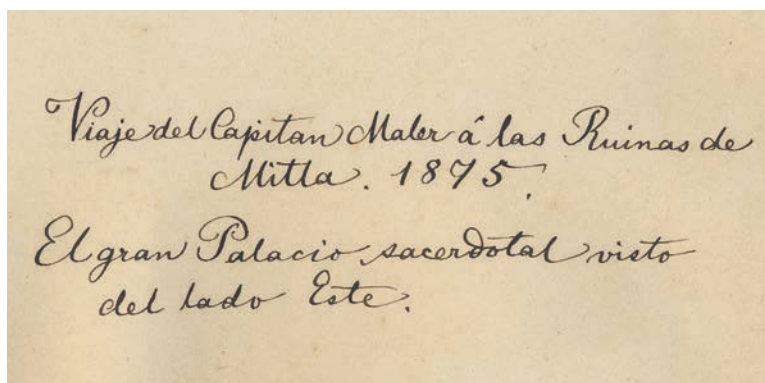 Viaje del Capitan Maler á las Ruinas de
Mitla. 1875.
El gran Palacio sacerdotal visto
del lado Este.